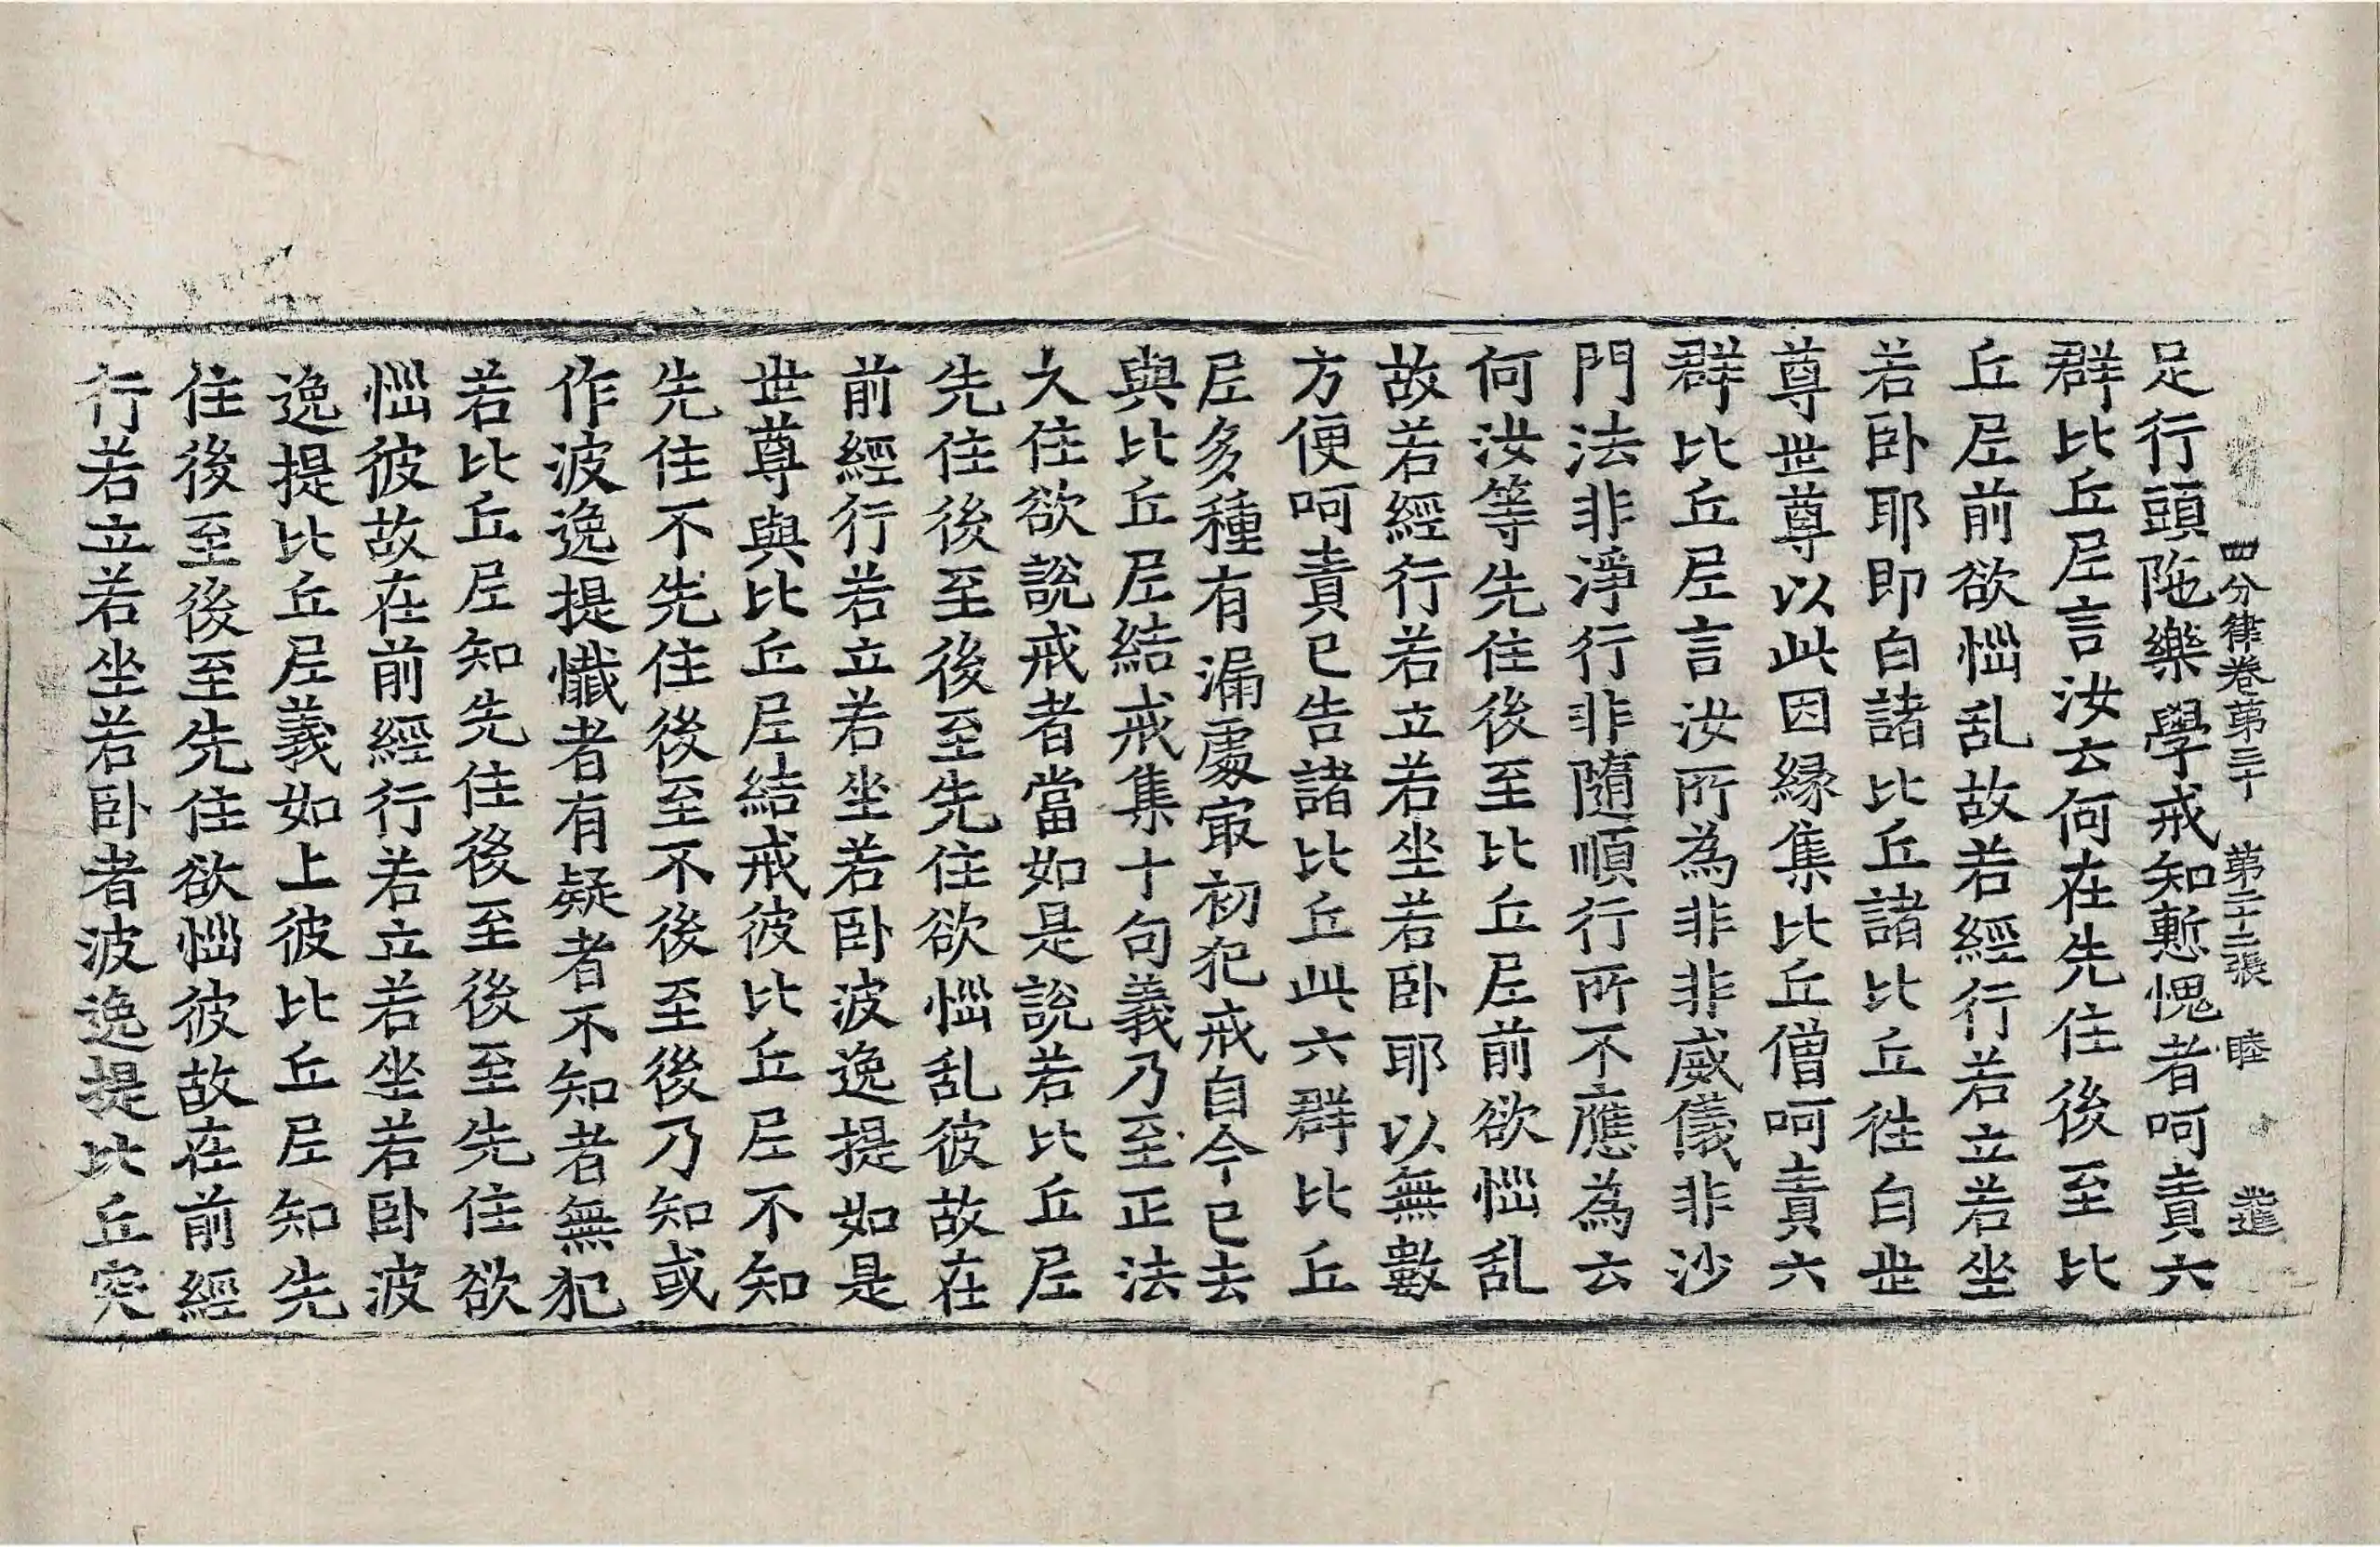 四分律卷第三十 第二十二張 睦
足行頭陁樂學戒知慙愧者呵責六
群比丘尼言汝云何在先住後至比
丘尼前欲惱乱故若經行若立若坐
若卧耶即白諸比丘諸比丘往白世
尊世尊以此因縁集比丘僧呵責六
群比丘尼言汝所為非非威儀非沙
門法非淨行非隨順行所不應為云
何汝等先住後至比丘尼前欲惱乱
故若經行若立若坐若卧耶以無數
方便呵責已告諸比丘此六群比丘
尼多種有漏處冣初犯戒自今已去
與比丘尼結戒集十句義乃至正法
久住欲說戒者當如是說若比丘尼
先住後至後至先住欲惱乱彼故在
前經行若立若坐若卧波逸提如是
世尊與比丘尼結戒彼比丘尼不知
先住不先住後至不後至後乃知或
作波逸提懺者有疑者不知者無犯
若比丘尼知先住後至後至先住欲
惱彼故在前經行若立若坐若卧波
逸提比丘尼義如上彼比丘尼知先
住後至後至先住欲惱彼故在前經
行若立若坐若卧者波逸提比丘突